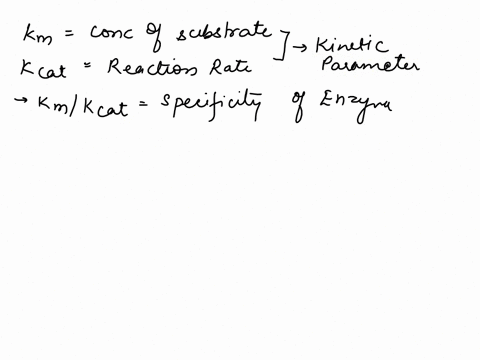 Km = conc of substrate
Kcat = Reaction Rate
→ Kinetic Parameter
→ Km/Kcat = Specificity of Enzyme